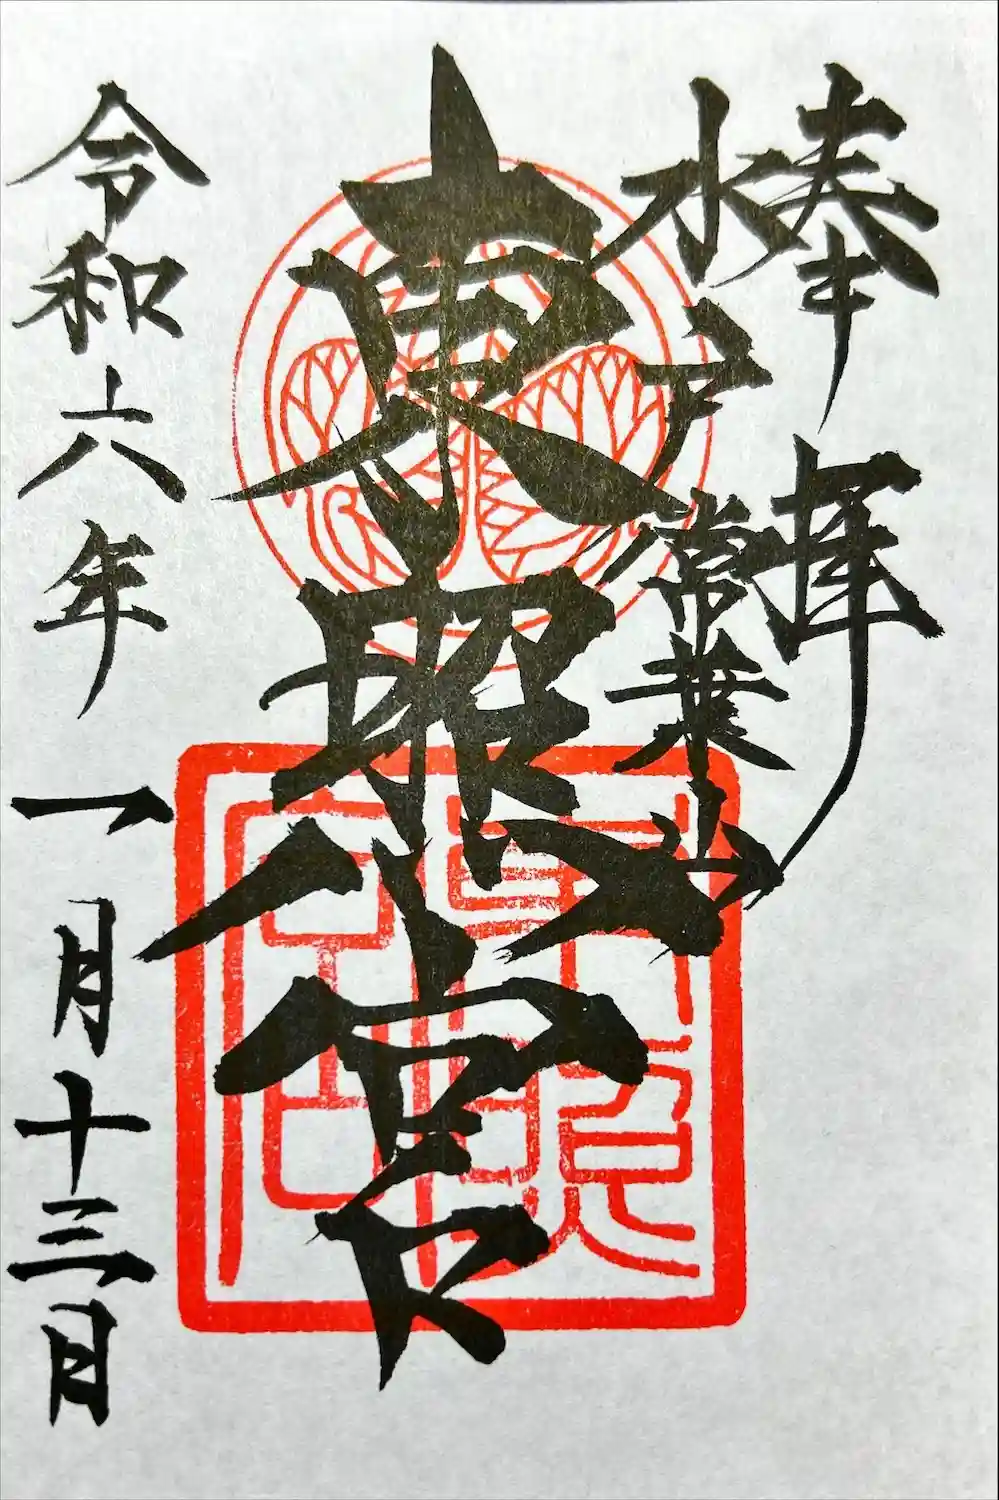 奉拝
水戸 常葉山
東照宮
東照宮
令和六年一月十三日